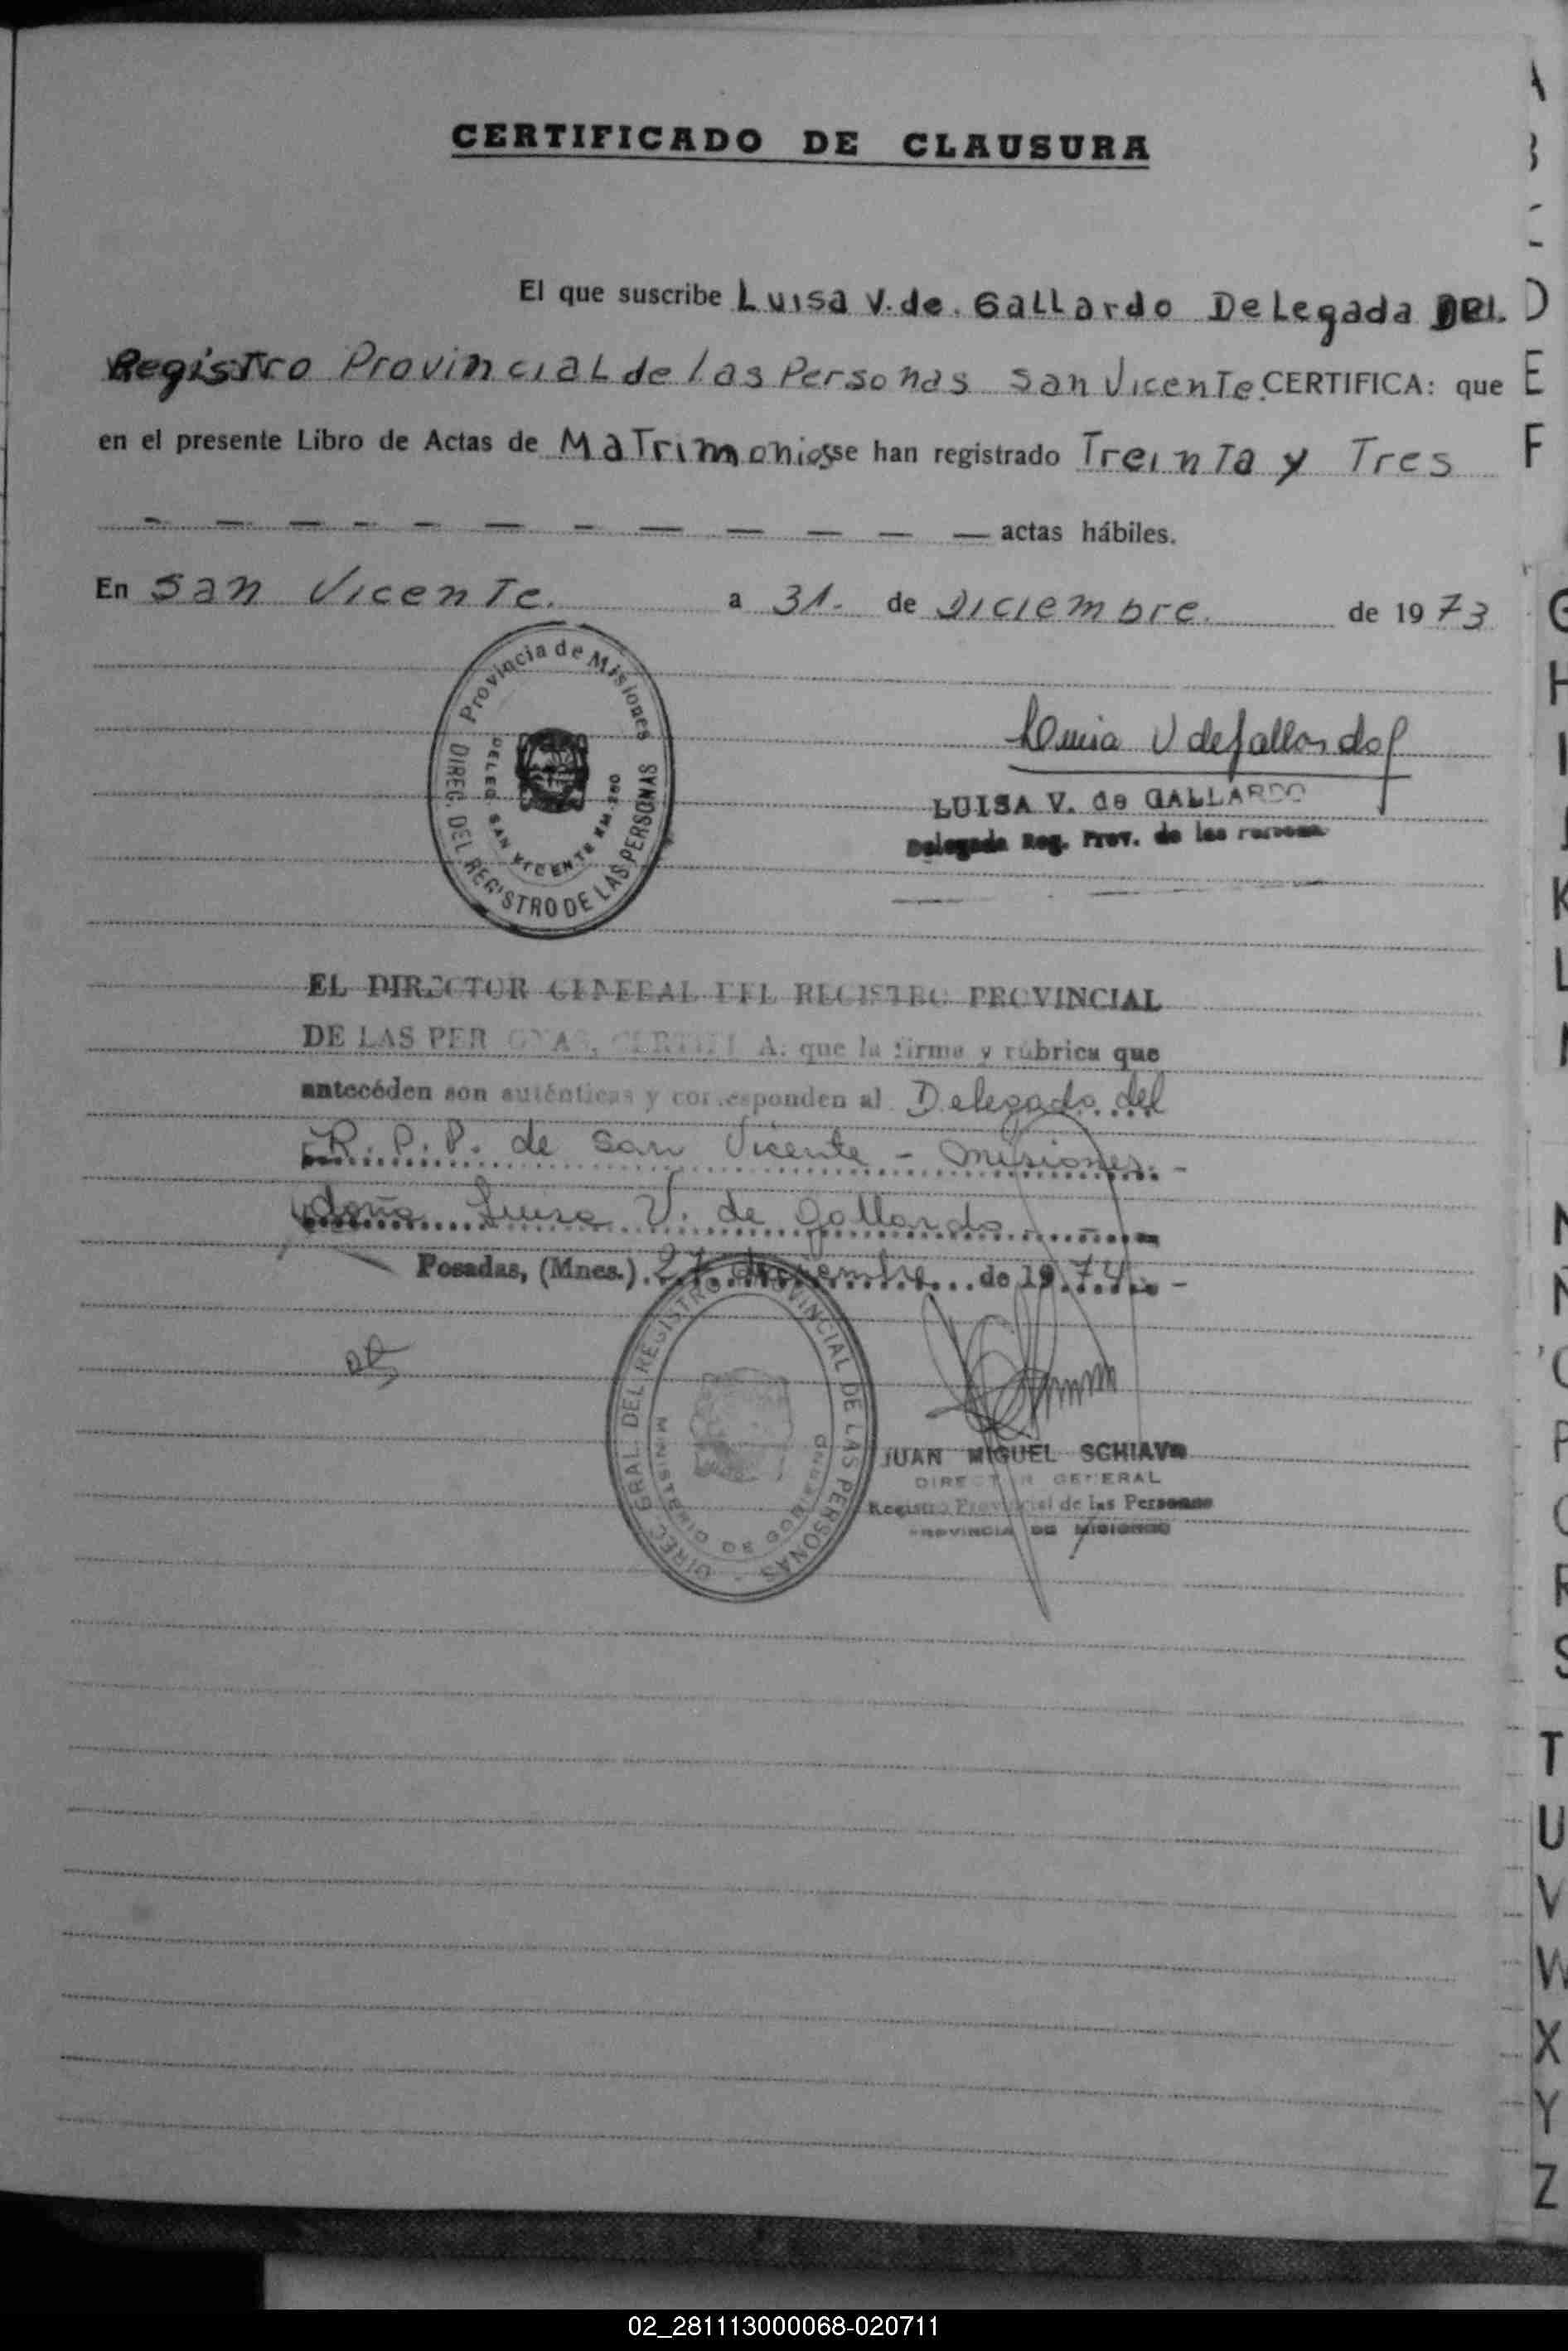 CERTIFICADO DE CLAUSURA
El que suscribe Luisa V. de. Gallardo Delegada DEL.
Registro Provincial de las Personas San Vicente. CERTIFICA: que
en el presente Libro de Actas de Matrimonios se han registrado Treinta y Tres
- — — - - — - — — — — — actas hábiles.
En San Vicente. a 31. de Diciembre. de 1973
Provincia de Misiones
DIREC. DEL REGISTRO DE LAS PERSONAS
DELEG. SAN VICENTE KM. 260
Luisa V de Gallardo
LUISA V. de GALLARDO
Delegada Reg. Prov. de las Personas
EL DIRECTOR GENERAL DEL REGISTRO PROVINCIAL
DE LAS PERSONAS, CERTIFICA: que la firma y rúbrica que
antecéden son auténticas y corresponden al Delegado del
R. P. P. de San Vicente - Misiones. -
doña Luisa V. de Gallardo
Posadas, (Mnes.) de 1974. -
DIREC. GRAL. DEL REGISTRO PROVINCIAL DE LAS PERSONAS -
MINISTERIO DE GOBIERNO
JUAN MIGUEL SCHIAVO
DIRECTOR GENERAL
Registro Provincial de las Personas
PROVINCIA DE MISIONES
D
E
F
G
H
I
J
K
L
N
Ñ
O
P
R
S
T
U
V
W
X
Y
Z
02_281113000068-020711